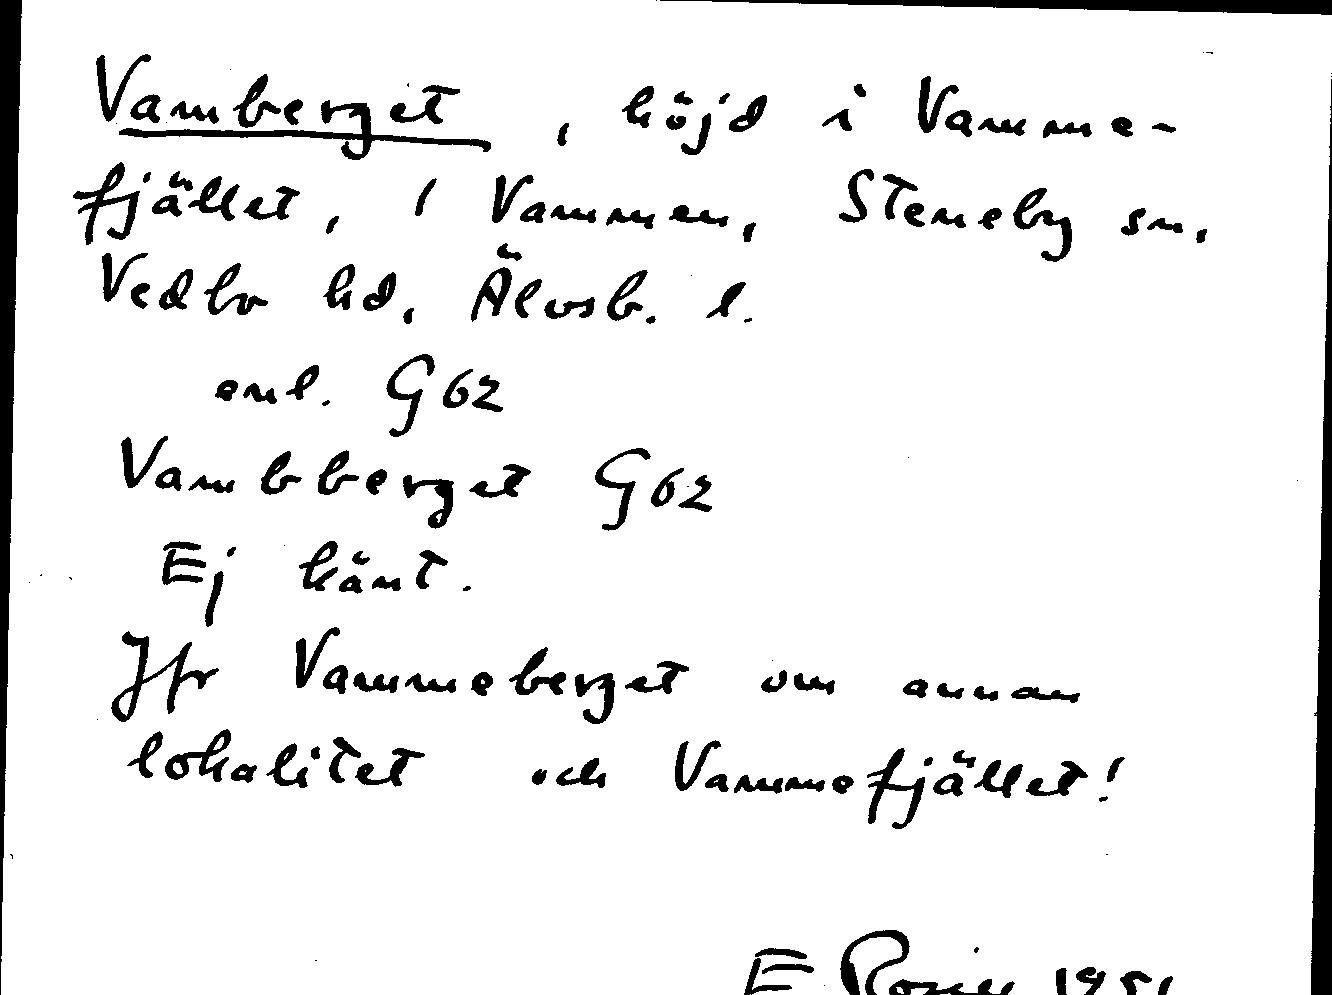 Vamberget, höjd i Vamme-
fjället, i Vammen, Steneby sn,
Vedbo hd, Älvsb. l.
enl. G62
Vambberget G62
Ej känt.
Jfr Vammeberget om annan
lokalitet och Vammefjället!
E